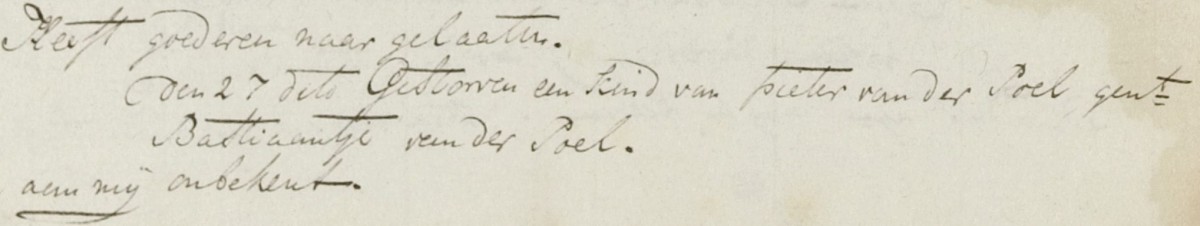 Heeft goederen naar gelaaten.
Den 27 dito Gestorven een kind van pieter van der Poel gent=
Bastiaantje van der Poel.
aan mij onbekent.